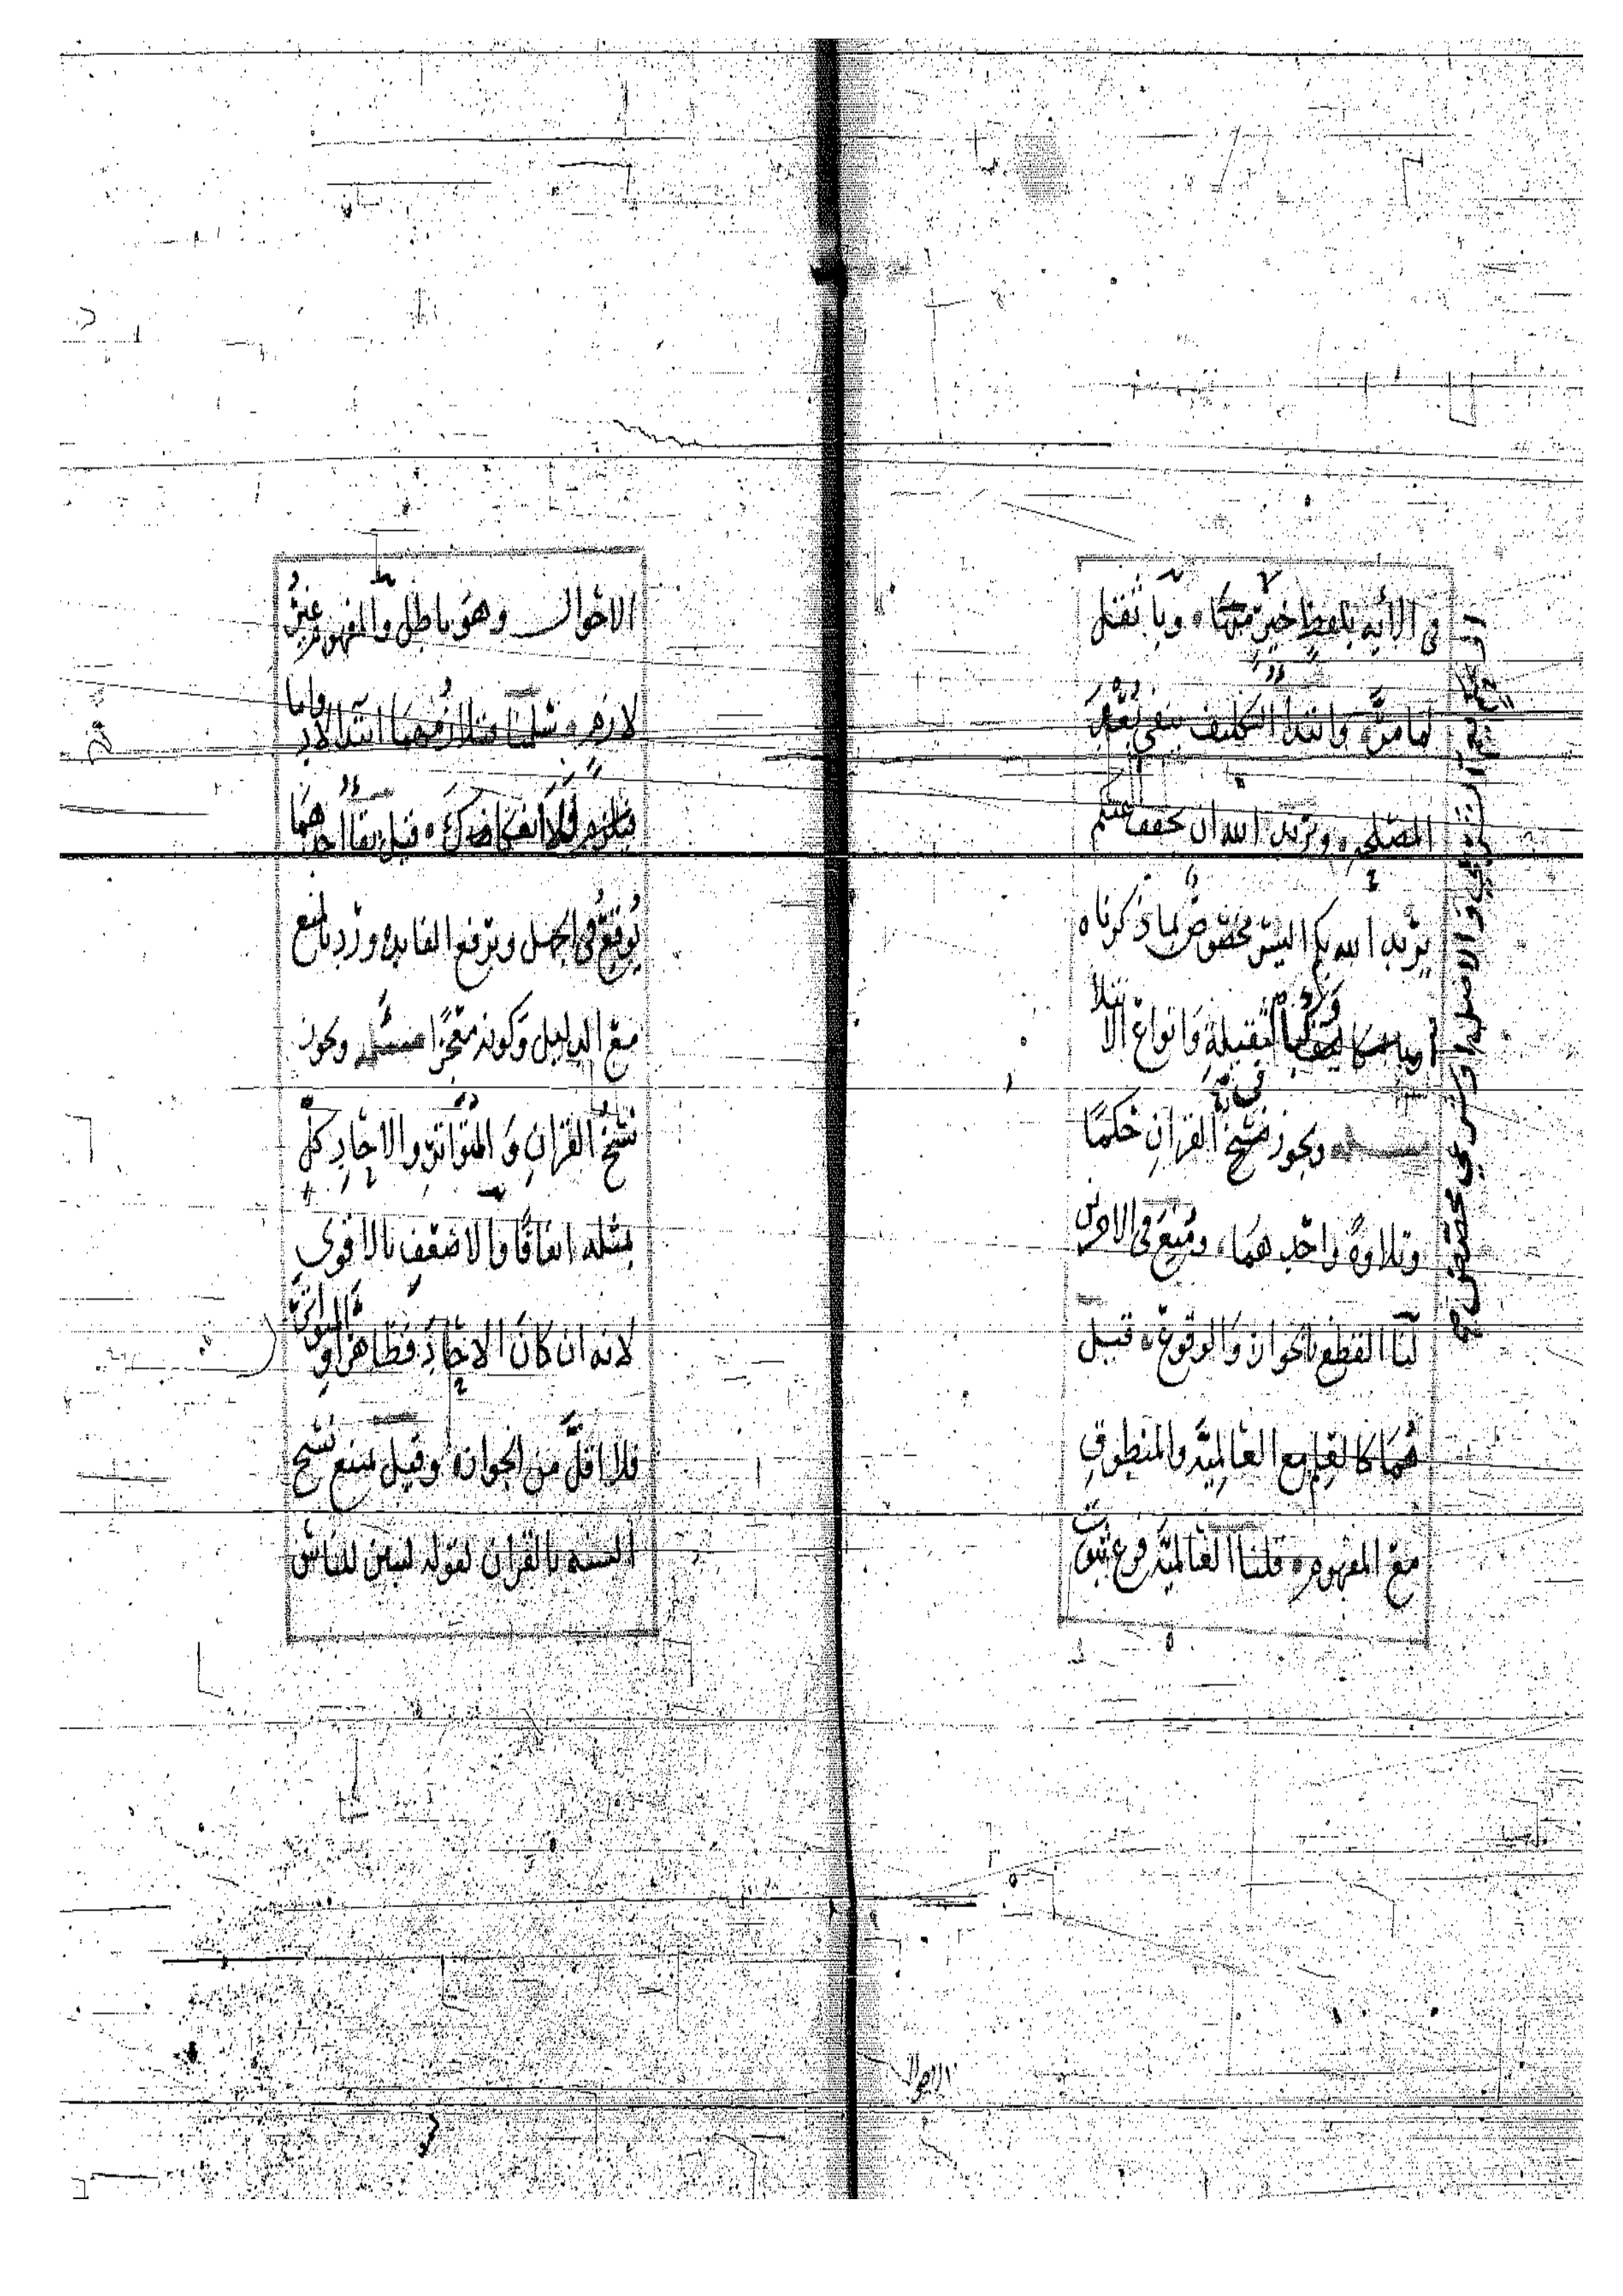 في الأيه بلفظ خيرٍ منها، وبا ثقل
لما مرَّ، وابتدأ التكليف ينفي بُعْدَ
المصلحة، ويريد الله أن يخفف عنكم
يريد الله بكم اليسر مخصوصٌ بما ذكرناه
الثقيلة وانواع الابتلا
مسئله ويجوز نسخ القرانِ حُكمًا
وتلاوةً واحدهما، ومُنِعَ في الاخرين
لنا القطع بالجواز والوقوع، قيل
هُمَا كالعلم مع العَالميَّه والمنطوقِ
مع المفهوم، قلنا العالميَّه فرع ثبوت
الاحوال
الاحوال وهو باطل والمفهوم غيرُ
لازم، سلمنا فتلازمهما ابتدا لا دواما
قيل بقا احدهما
يُوقِعُ في الجهل ويرفع الفايده ورُد بالمنع
مع الدليل وكونه معجزًا مسئله ويجوز
نسْخُ القرانِ وَالمتواترِ والاحادِ كلٍّ
بمثله اتفاقًا والاضعف بالاقوى
لانه ان كان الاحادَ فظاهرٌ او المتواتر
فلا اقلَّ من الجواز، وقيل يمتنع نسْخ
السنه بالقران لقوله لتبين للناس